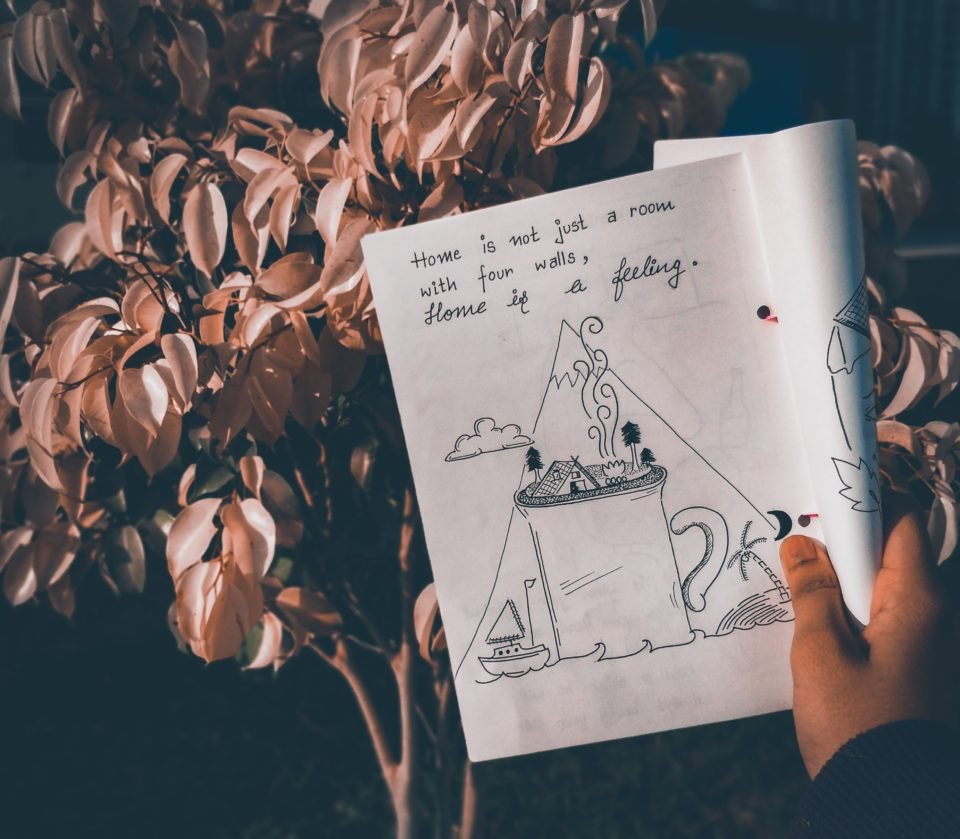 Home is not just a room
with four walls,
Home is a feeling.